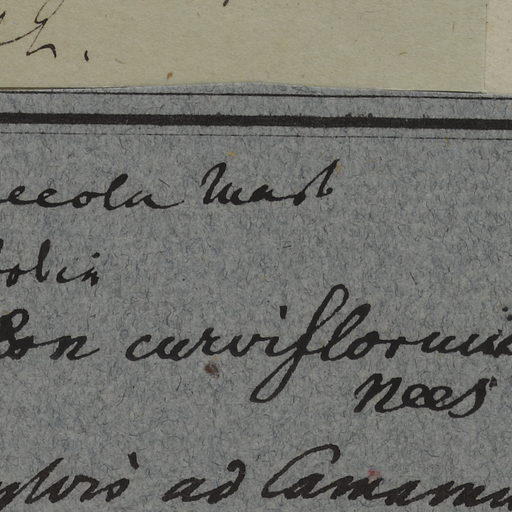 eccola Mart
folia
Bon curviflorum
Nees
sylvis ad Camamu